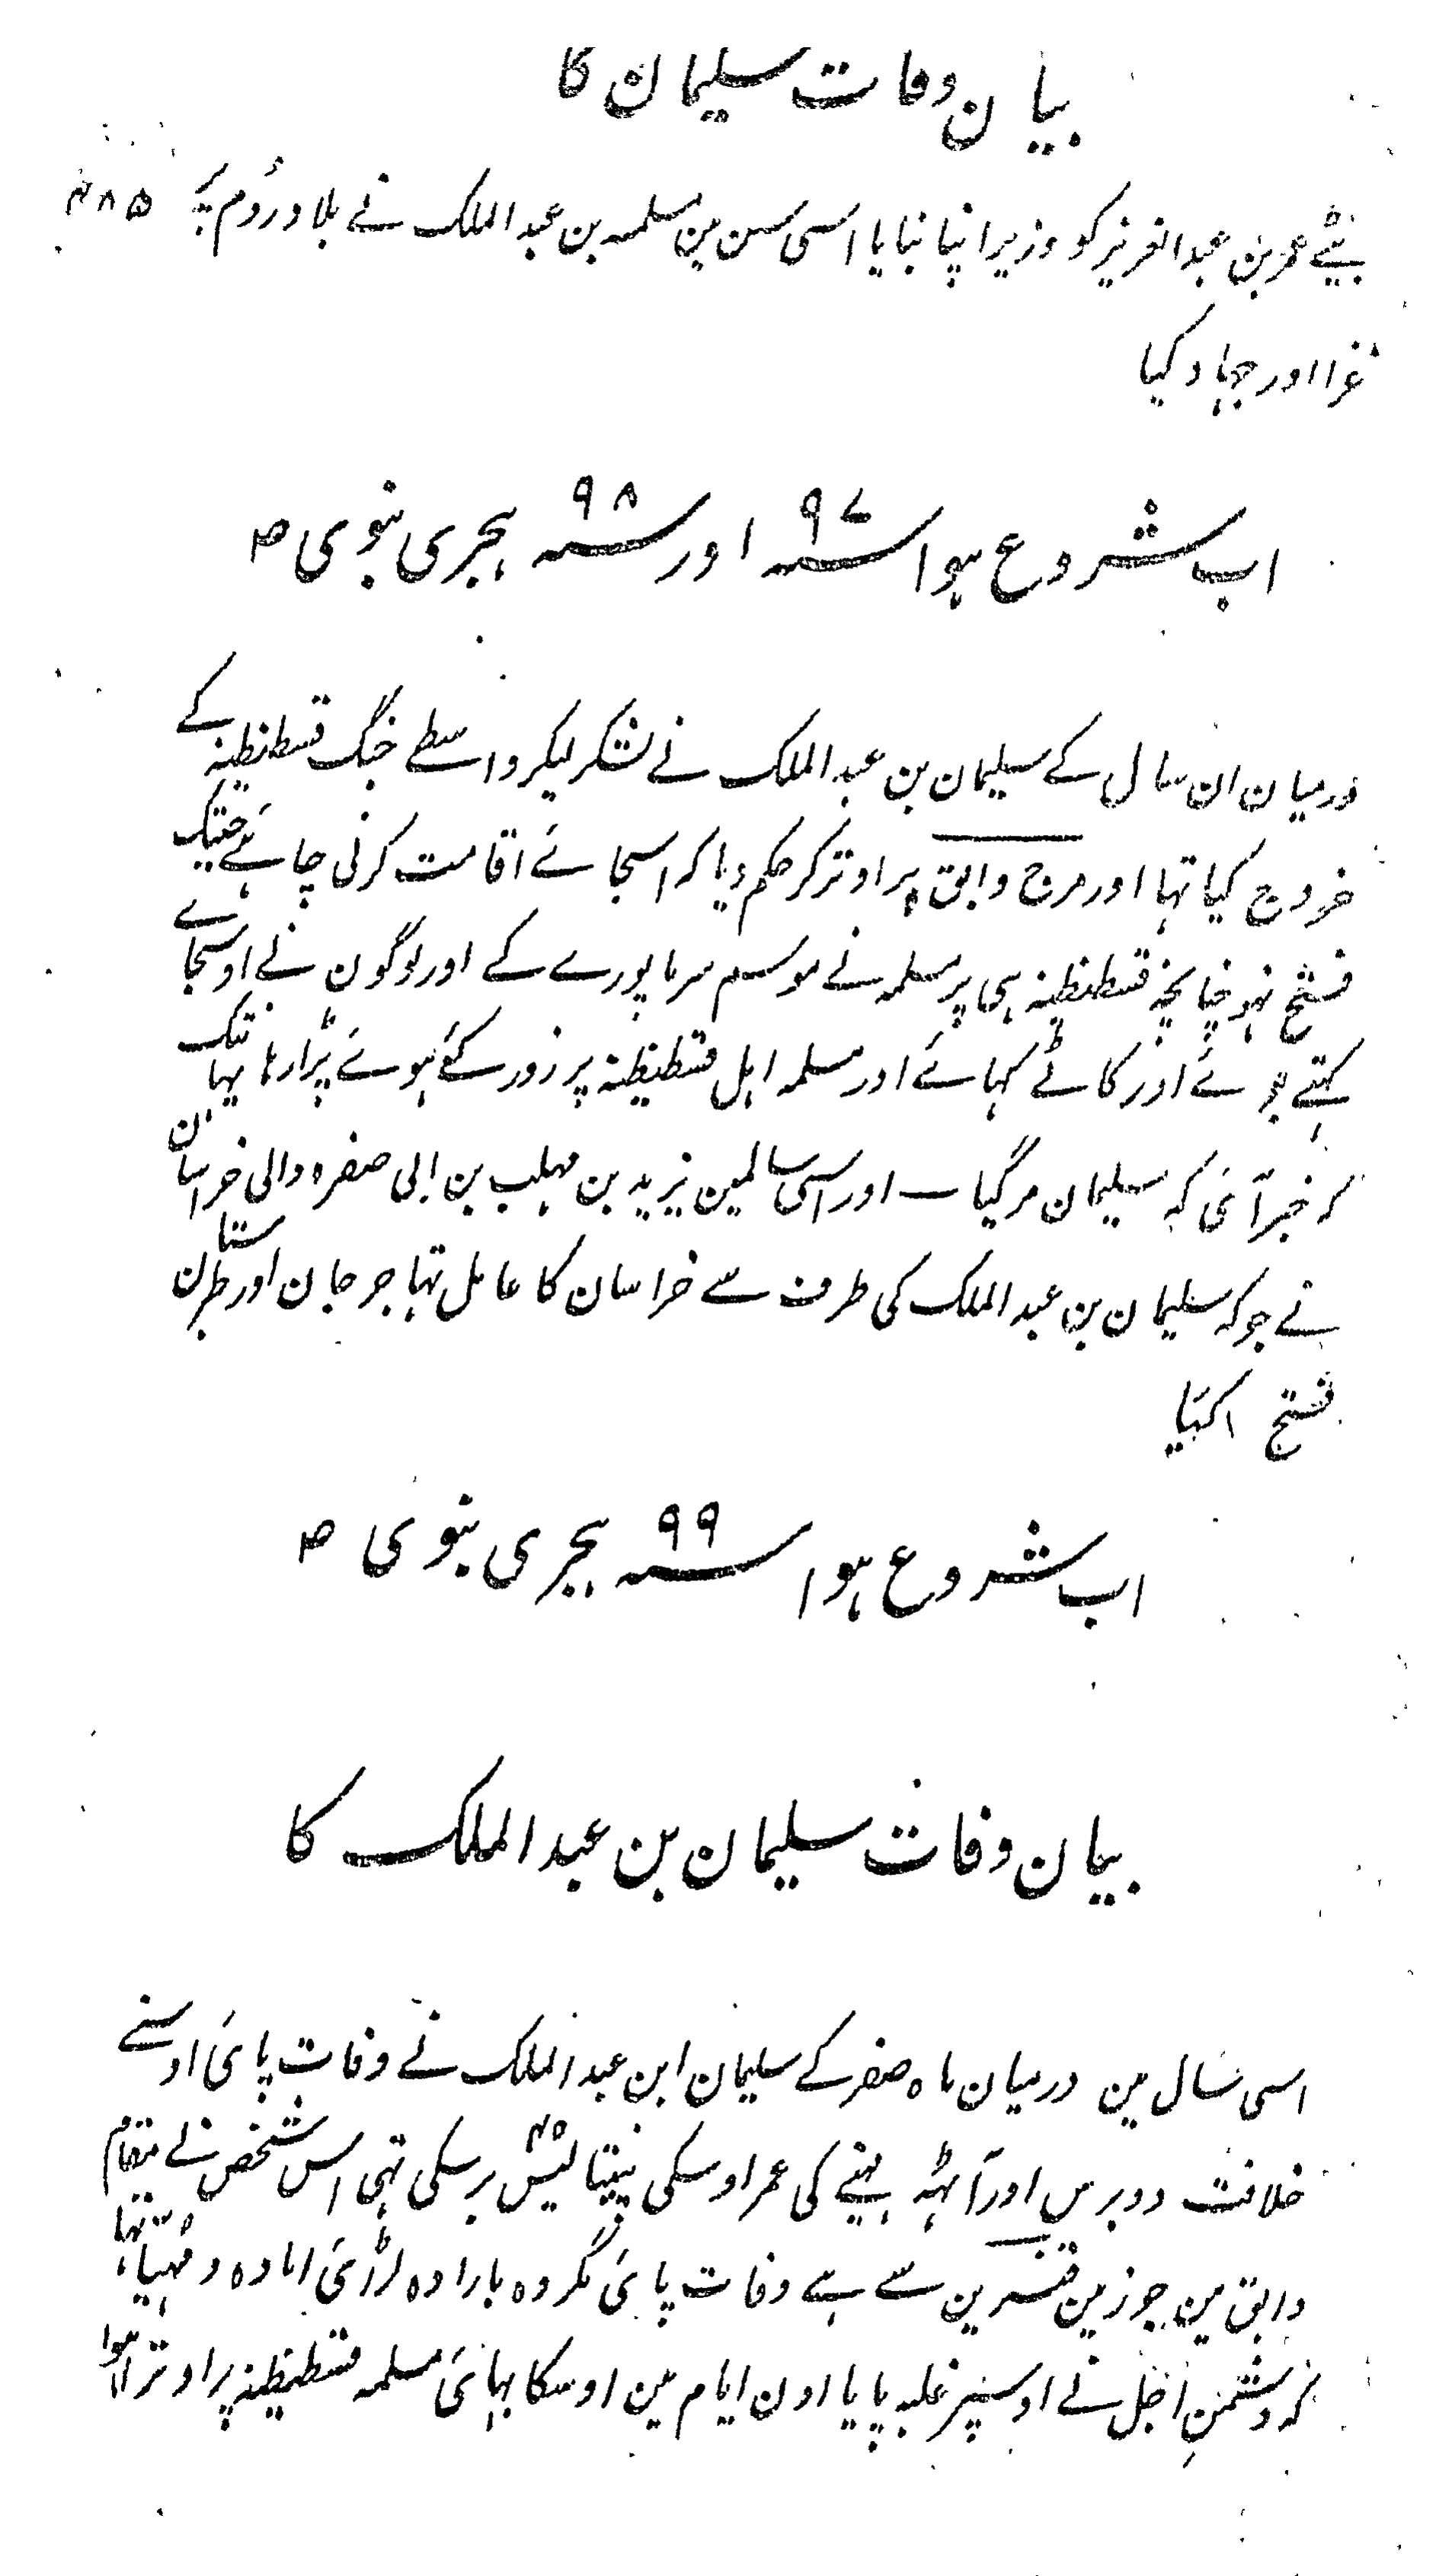 بیان وفات سلیمان کا
۴۸۵
بیٹے عمر بن عبدالعزیز کو وزیر اپنا بنایا اسی سن مین مسلمہ بن عبدالملک نے بلاد روم پر
غزا اور جہاد کیا
اب شروع ہوا سنہ ۹۷ اور سنہ ۹۸ ہجری نبوی ص
درمیان ان سال کے سلیمان بن عبدالملک نے لشکر لیکر واسطے جنگ قسطنطنیہ کے
خروج کیا تہا اور مرج دابق پر اوترکر حکم دیا کہ اسجائے اقامت کرنی چاہئے جبتک
فتح نہو چنانچہ قسطنطنیہ ہی پر مسلمہ نے موسم سرما پورے کے اور لوگون نے اوسجاے
کہتے بوئے اور کاٹے کہائے اور مسلمہ اہل قسطنطنیہ پر زور کئے ہوئے پڑا رہا یہانتک
کہ خبر آئی کہ سلیمان مرگیا اور اسی سالمین یزید بن مہلب بن ابی صفرہ والی خراسان
نے جو کہ سلیمان بن عبدالملک کی طرف سے خراسان کا عامل تہا جرجان اور طبرستان
فتح کیا
اب شروع ہوا سنہ ۹۹ ہجری نبوی ص
بیان وفات سلیمان بن عبدالملک کا
اسی سال مین درمیان ماہ صفر کے سلیمان ابن عبدالملک نے وفات پائی اوسنے
خلافت دو برس اور آٹہہ مہینے کی عمر اوسکی پینتالیس ۴۵ برسکی تہی اس شخص نے مقام
دابق مین جو زمین قنسرین سے ہے وفات پائی مگر وہ بارادہ لڑائی امادہ و مہیا تہا
کہ دشمن اجل نے اوسپر غلبہ پایا اون ایام مین اوسکا بہائی مسلمہ قسطنطنیہ پر اوترا ہوا